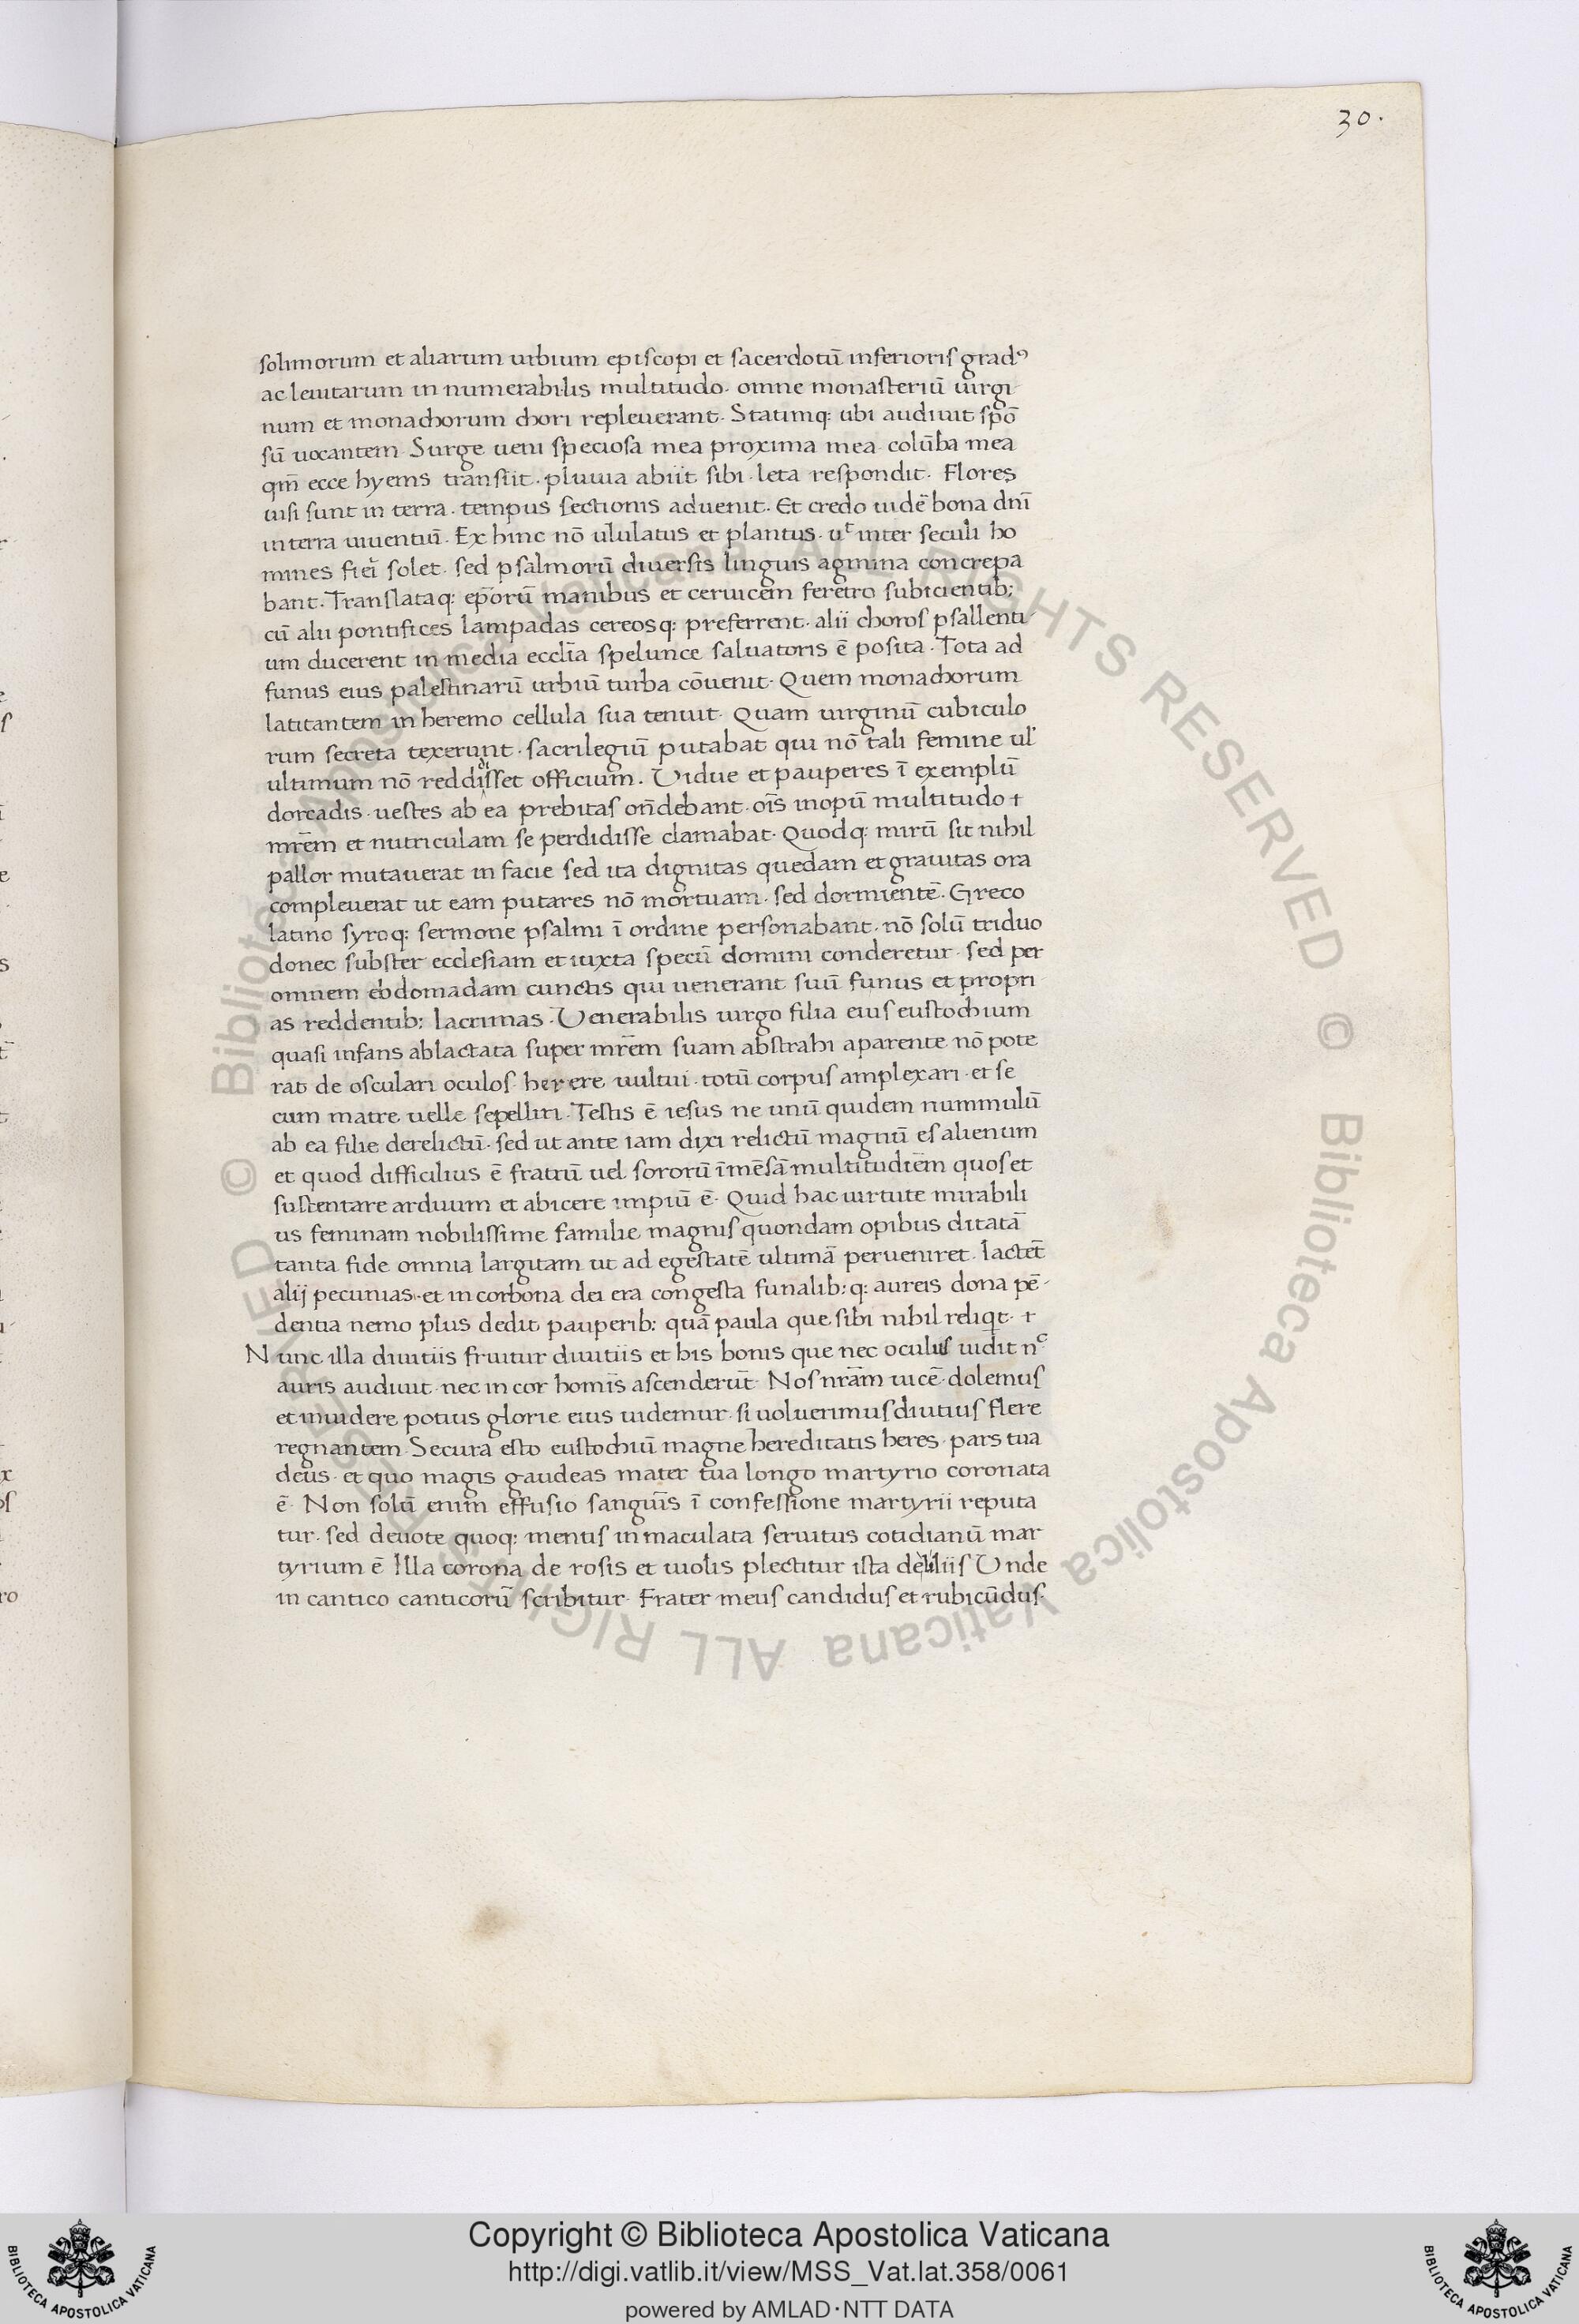 30.
solimorum et aliarum urbium episcopi et sacerdotū inferioris gradꝰ
ac leuitarum in numerabilis multitudo. omne monasteriū uirgi
num et monachorum chori repleuerant. Statimq: ubi audiuit spō
sū uocantem. Surge ueni speciosa mea proxima mea. colūba mea
qm̄ ecce hyems transiit. pluuia abiit sibi. leta respondit. Flores
uisi sunt in terra. tempus sectionis aduenit. Et credo uidē bona dnī
in terra uiuentiū. Ex hinc nō ululatus et plantus. uᵗ inter seculi ho
mines fiei solet. sed psalmorū diuersis linguis agmina concrepa
bant. Translataq: ep̄orū manibus et ceruicem feretro subicientib;
cū alii pontifices lampadas cereosq: preferrent. alii choros psallenti
um ducerent in media eccl̄ia spelunce saluatoris ē posita. Tota ad
funus eius palestinarū urbiū turba cōuenit. Quem monachorum
latitantem in heremo cellula sua tenuit. Quam uirginū cubiculo
rum secreta texerunt. sacrilegiū putabat qui nō tali femine ul'
ultimum nō reddidisset officium. Vidue et pauperes ī exemplū
dorcadis. uestes ab ea prebitas on̄debant. oīs inopū multitudo +
mr̄em et nutriculam se perdidisse clamabat. Quodq: mirū sit nihil
pallor mutauerat in facie sed ita dignitas quedam et grauitas ora
compleuerat ut eam putares nō mortuam. sed dormientē. Greco
latino syroq: sermone psalmi ī ordine personabant. nō solū triduo
donec subster ecclesiam et iuxta specū domini conderetur. sed per
omnem ebdomadam cunctis qui uenerant suū funus et propri
as reddentib: lacrimas. Venerabilis uirgo filia eius eustochium
quasi infans ablactata super mr̄em suam abstrahi aparente nō pote
rat de osculari oculos herere uultui. totū corpus amplexari. et se
cum matre uelle sepelliri. Testis ē iesus ne unū quidem nummulū
ab ea filie derelictū. sed ut ante iam dixi relictū magnū es alienum
et quod difficilius ē fratrū uel sororū īmēsā multitudiēm quos et
sustentare arduum et abicere impiū ē. Quid hac uirtute mirabili
us feminam nobilissime familie magnis quondam opibus ditatā
tanta fide omnia largitam ut ad egestatē ultimā perueniret. Iactēt
alij pecunias. et in corbona dei era congesta funalib: q: aureis dona pē
dentia nemo plus dedit pauperib: quā paula que sibi nihil reliqt. +
Nunc illa diuitiis fruitur diuitiis et his bonis que nec oculus uidit nᶜ
auris audiuit. nec in cor homīs ascenderūt. Nos nr̄am uicē. dolemus
et inuidere potius glorie eius uidemur. si uoluerimus diutius flere
regnantem. Secura esto eustochiū magne hereditatis heres. pars tua
deus. et quo magis gaudeas mater tua longo martyrio coronata
ē. Non solū enim effusio sanguīs ī confessione martyrii reputa
tur. sed deuote quoq: mentis inmaculata seruitus cotidianū mar
tyrium ē Illa corona de rosis et uiolis plectitur ista de liliis Unde
in cantico canticorū scribitur. Frater meus candidus et rubicūdus.
© Biblioteca Apostolica Vaticana ALL RIGHTS RESERVED © Biblioteca Apostolica Vaticana ALL RIGHTS RESERVED
BIBLIOTECA APOSTOLICA VATICANA
Copyright © Biblioteca Apostolica Vaticana
http://digi.vatlib.it/view/MSS_Vat.lat.358/0061
powered by AMLAD·NTT DATA
BIBLIOTECA APOSTOLICA VATICANA